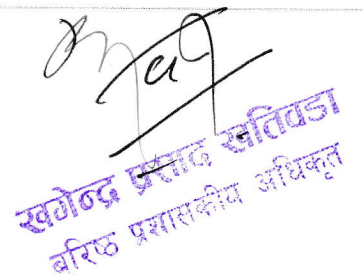 खगेन्द्र प्रसाद खतिवडा
बरिष्ठ प्रशासकीय अधिकृत